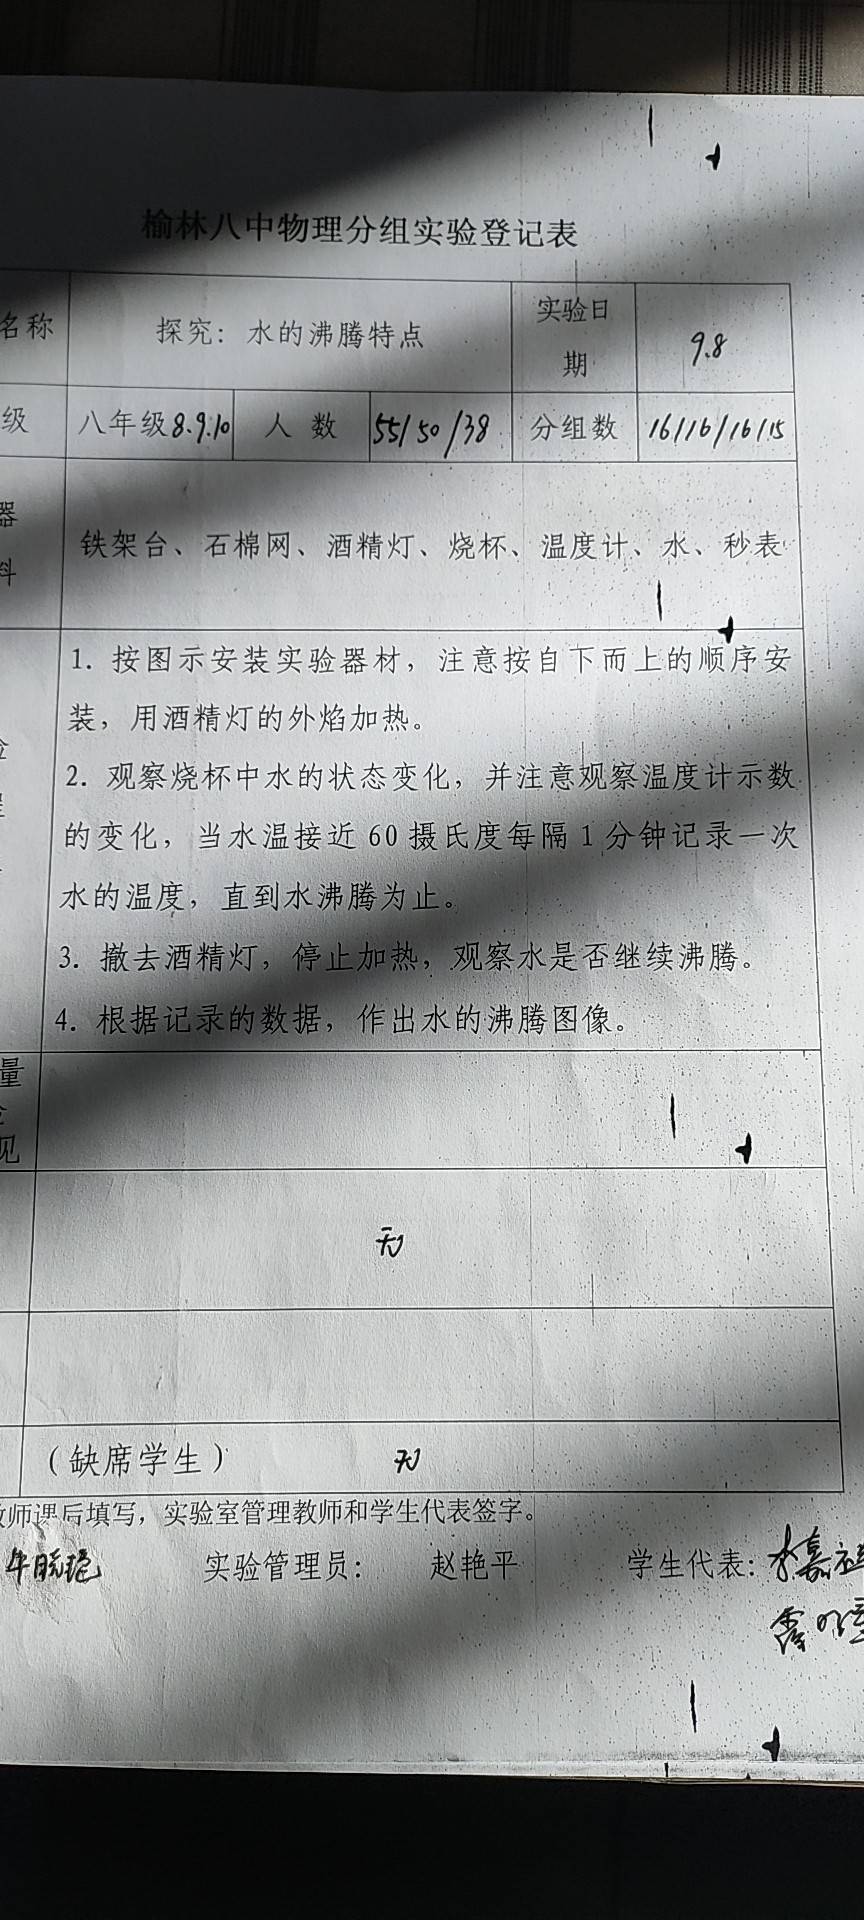 榆林八中物理分组实验登记表
名称 探究：水的沸腾特点 实验日期 9.8
级 八年级8.9.10 人数 55/50/38 分组数 16/16/16/15
器
料
铁架台、石棉网、酒精灯、烧杯、温度计、水、秒表
1. 按图示安装实验器材，注意按自下而上的顺序安
装，用酒精灯的外焰加热。
2. 观察烧杯中水的状态变化，并注意观察温度计示数
的变化，当水温接近 60 摄氏度每隔 1 分钟记录一次
水的温度，直到水沸腾为止。
3. 撤去酒精灯，停止加热，观察水是否继续沸腾。
4. 根据记录的数据，作出水的沸腾图像。
量
见
无
（缺席学生） 无
师课后填写，实验室管理教师和学生代表签字。
牛晓艳 实验管理员： 赵艳平 学生代表：